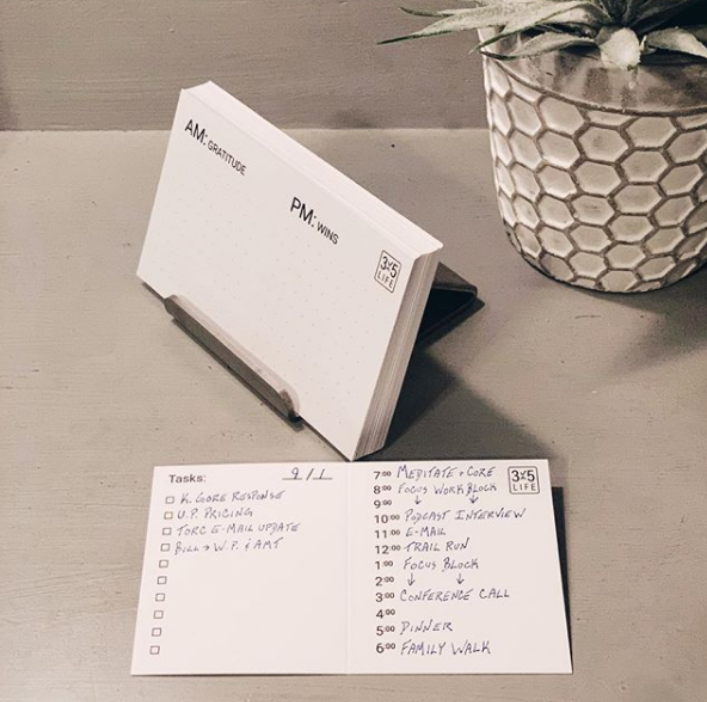 AM: GRATITUDE
PM: WINS
3x5
LIFE
Tasks: 9/1
K. GORE RESPONSE
U.P. PRICING
TORC E-MAIL UPDATE
BILL → W.P. & AMT
3x5
LIFE
7:00 MEDITATE + CORE
8:00 FOCUS WORK BLOCK
9:00 ↓ ↓
10:00 PODCAST INTERVIEW
11:00 E-MAIL
12:00 TRAIL RUN
1:00 FOCUS BLOCK
2:00 ↓ ↓
3:00 CONFERENCE CALL
4:00
5:00 DINNER
6:00 FAMILY WALK